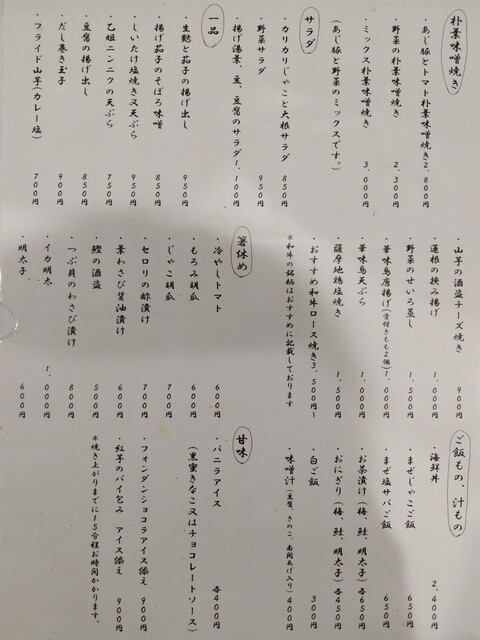 朴葉味噌焼き
・あじ豚とトマト朴葉味噌焼き 2,800円
・野菜の朴葉味噌焼き 2,300円
・ミックス朴葉味噌焼き 3,000円
(あじ豚と野菜のミックスです。)
サラダ
・カリカリじゃこと大根サラダ 850円
・野菜サラダ 950円
・揚げ湯葉、豆、豆腐のサラダ 1,100円
一品
・生麩と茄子の揚げ出し 950円
・揚げ茄子のそぼろ味噌 850円
・しいたけ塩焼き又天ぷら 950円
・乙姫ニンニクの天ぷら 750円
・豆腐の揚げ出し 850円
・だし巻き玉子 900円
・フライド山芋(カレー塩) 700円
・山芋の酒盗チーズ焼き 900円
・蓮根の挟み揚げ 1,000円
・野菜のせいろ蒸し 1,500円
・華味鳥唐揚げ(骨付きもも2個) 1,000円
・華味鳥天ぷら 1,000円
・薩摩地鶏塩焼き 1,500円
・おすすめ和牛ロース焼き 3,500円～
＊和牛の銘柄はおすすめに記載しております
箸休め
・冷やしトマト 600円
・もろみ胡瓜 600円
・じゃこ胡瓜 700円
・セロリの酢漬け 700円
・葉わさび醤油漬け 600円
・鰹の酒盗 500円
・つぶ貝のわさび漬け 800円
・イカ明太 1,000円
・明太子 600円
ご飯もの、汁もの
・海鮮丼 2,400円
・まぜじゃこご飯 650円
・まぜ塩サバご飯 650円
・お茶漬け(梅、鮭、明太子)各650円
・おにぎり(梅、鮭、明太子)各450円
・白ご飯 300円
・味噌汁(豆腐、きのこ、南関あげ入り)400円
甘味
・バニラアイス 各400円
(黒蜜きなこ又はチョコレートソース)
・フォンダンショコラアイス添え 900円
・紅芋のパイ包み アイス添え 900円
＊焼き上がりまでに15分程お時間かかります。